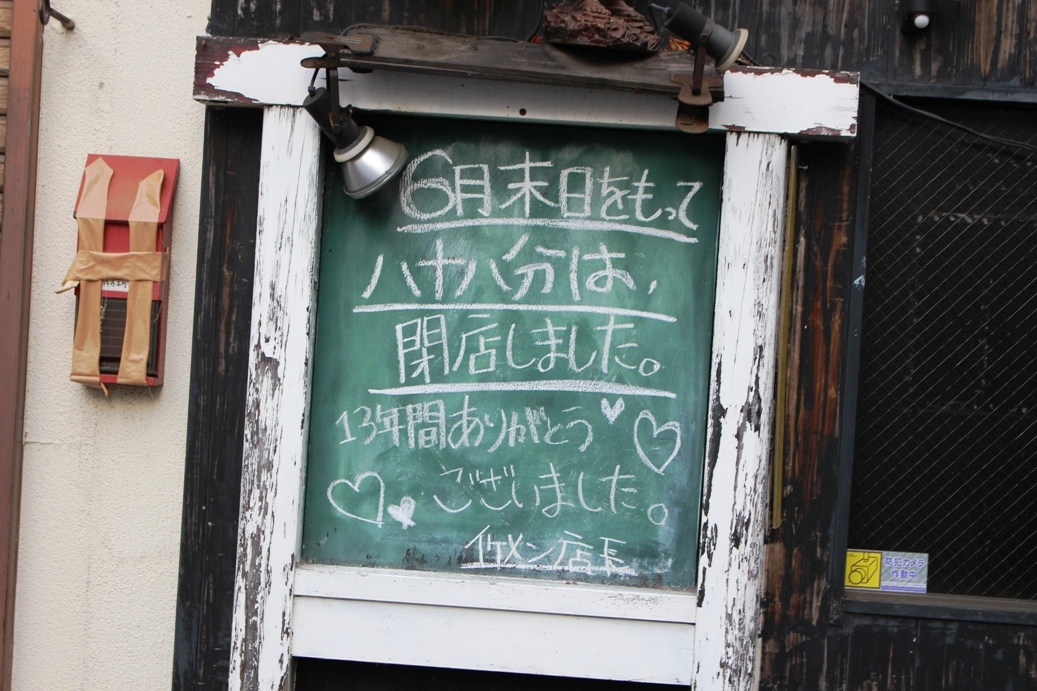 6月末日をもって
八十八分は、
閉店しました。
13年間ありがとう
ございました。
イケメン店長
防犯カメラ
作動中